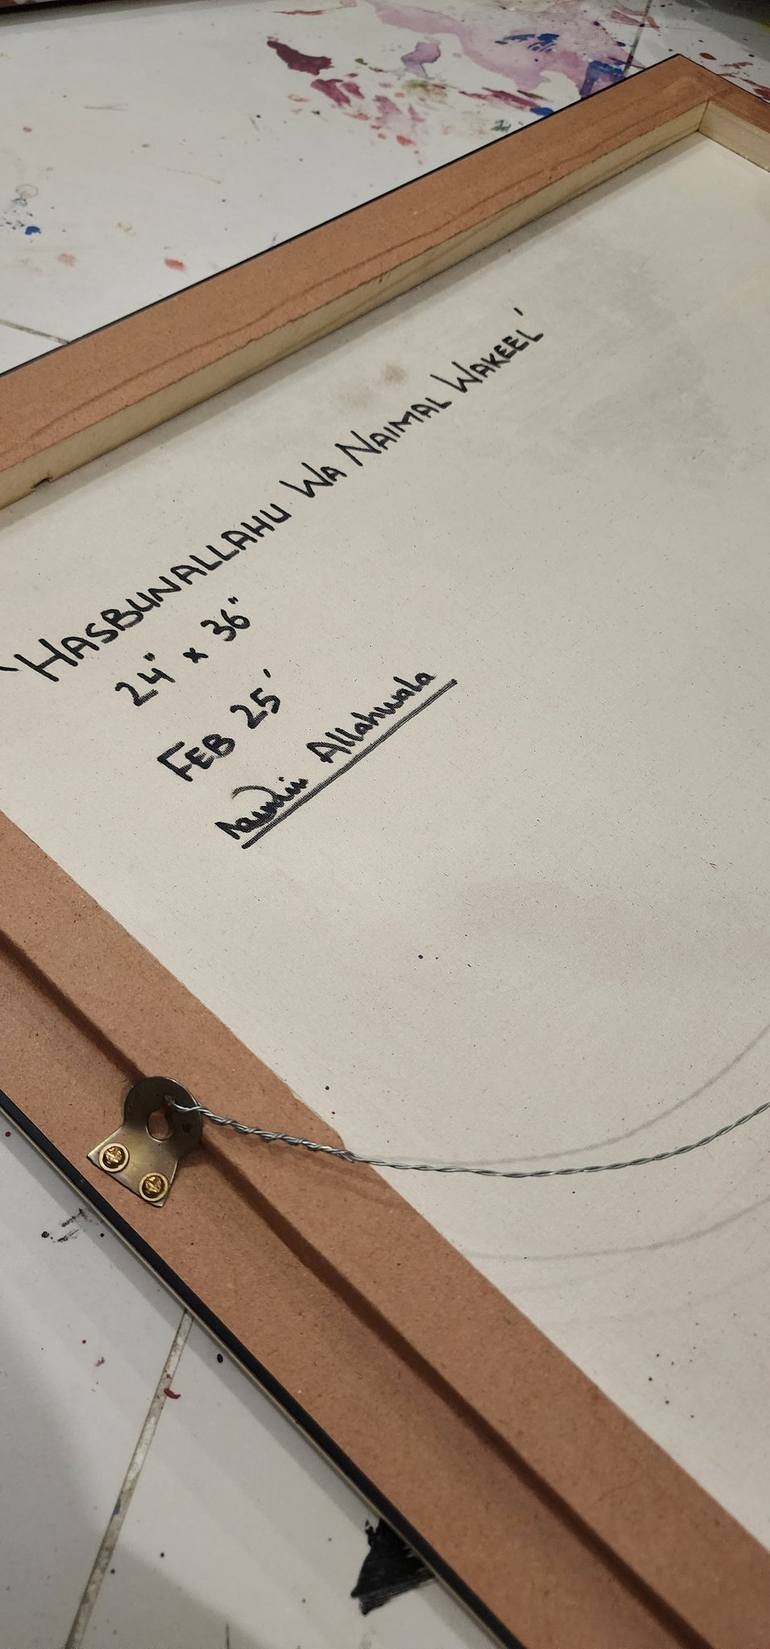 'HASBUNALLAHU WA NAIMAL WAKEEL'
24" x 36"
FEB 25'
Allahwala